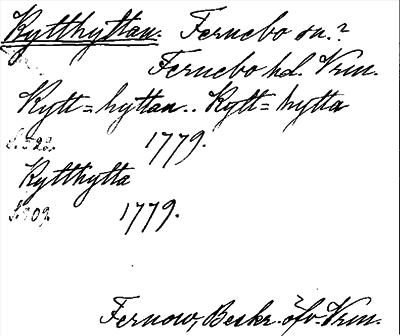 Kytthyttan. Fernebo sn.?
Fernebo hd. Vrm.
Kytt=hyttan.. Kytt=hytta
1779.
Kytthytta
1779.
Fernow, Beskr. öfv. Vrm.